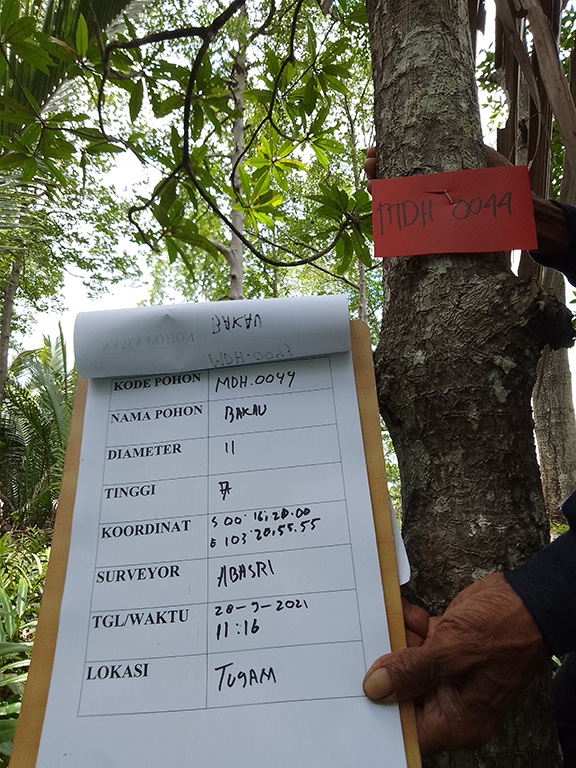 MDH 0044
BAKAU
KODE POHON MDH.0044
NAMA POHON BAKAU
DIAMETER 11
TINGGI 7
KOORDINAT S 00°.16,20.00
E 103°.20,55.55
SURVEYOR ABASRI
TGL/WAKTU 20-9-2021
11:16
LOKASI TUGAM